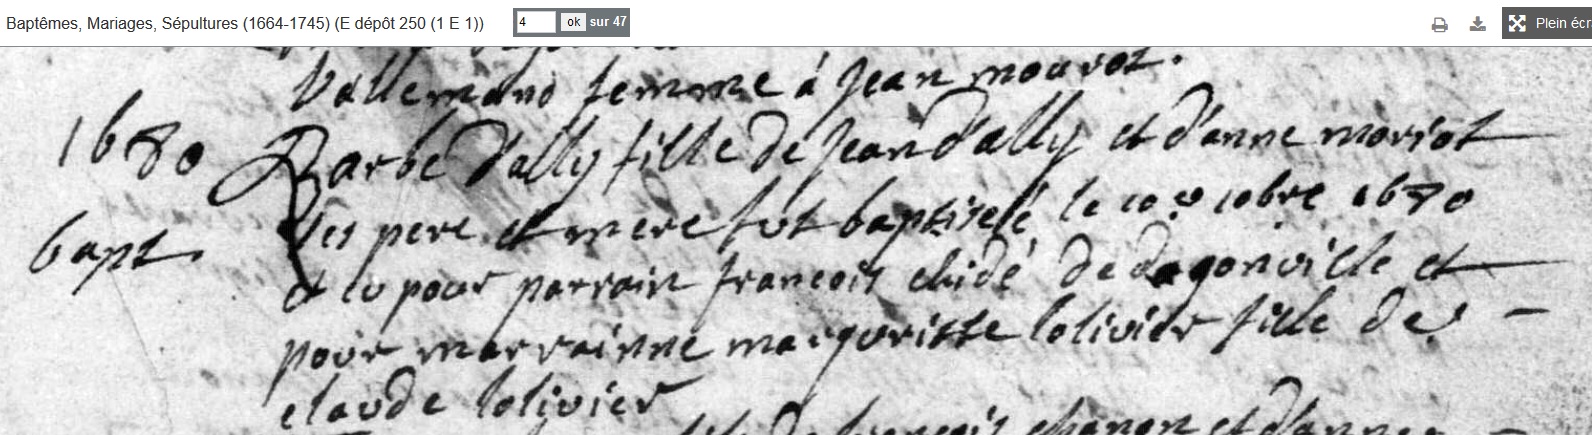 Baptêmes, Mariages, Sépultures (1664-1745) (E dépôt 250 (1 E 1)) 4 ok sur 47 Plein écr
Vallemand femme á Jean mourot.
1680 Barbe Dally fille de Jean Dally et d'anne moriot
bapt. Ses pere et mere fut baptiseé le 10 octobre 1680
et eu pour parrain francois chidé de dagonville et
pour marrainne marguritte lolivier fille de
claude lolivier
francois et d'anne